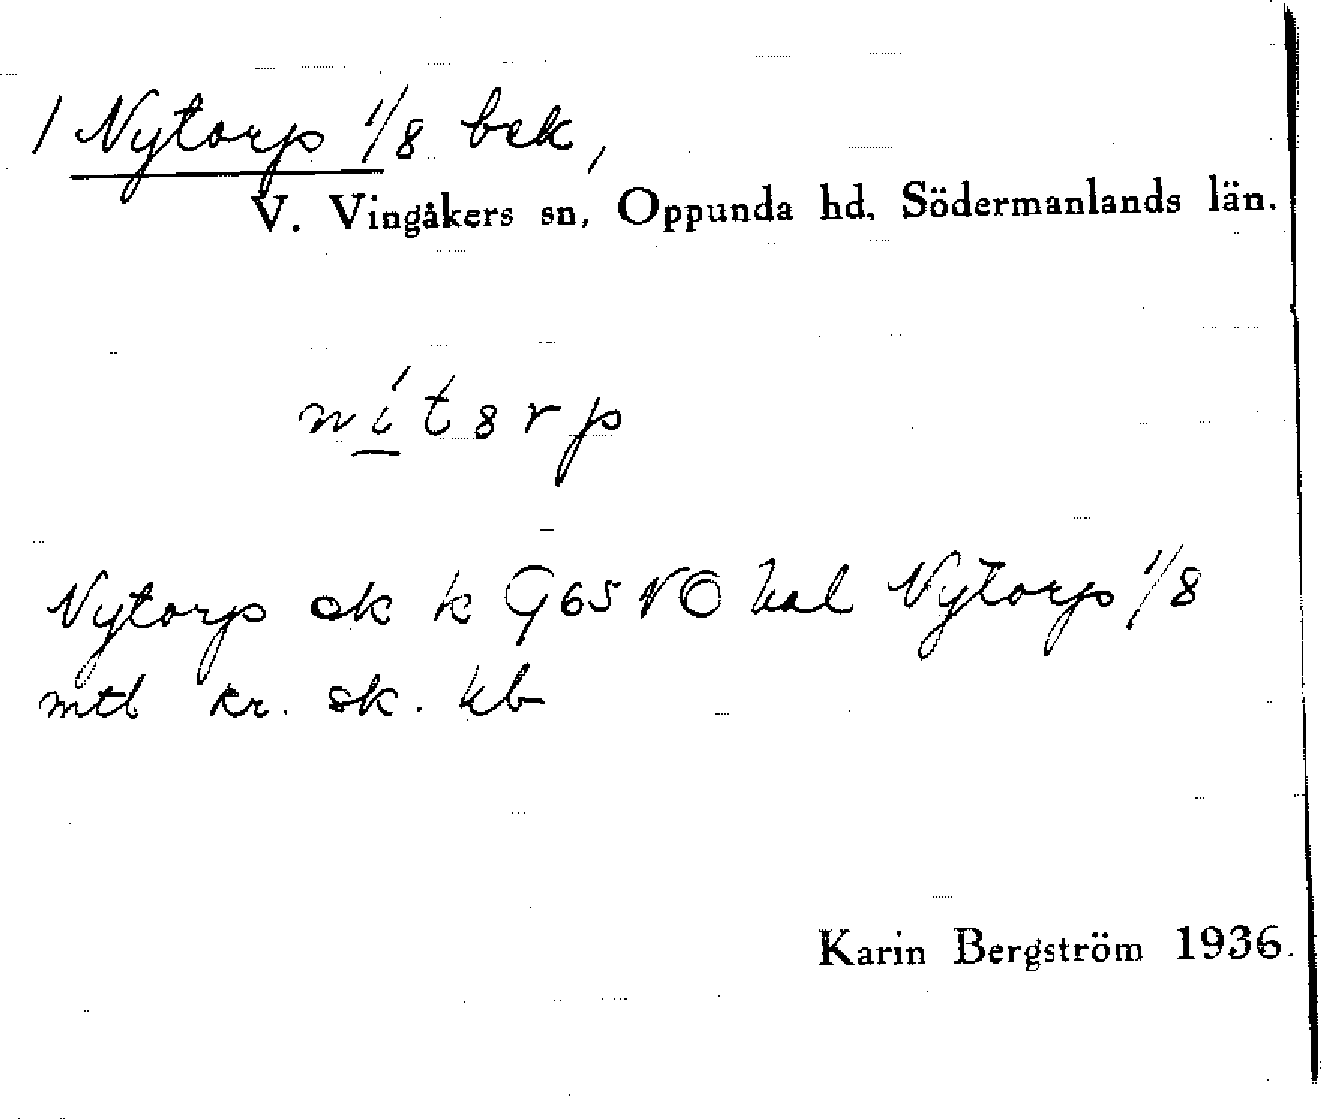 / Nytorp 1/8 bek,
V. Vingåkers sn, Oppunda hd, Södermanlands län.
nít8rp
Nytorp ek k G65 NO hal Nytorp 1/8
mtl kr. sk. kb
Karin Bergström 1936.